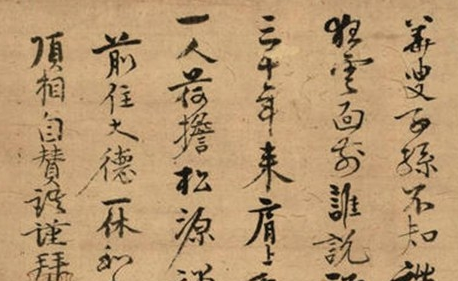 華叟子孫不知禅
狂雲面前誰説
三十年来肩上
一人荷擔松源
前住大德一休和
頂相自賛謹拜